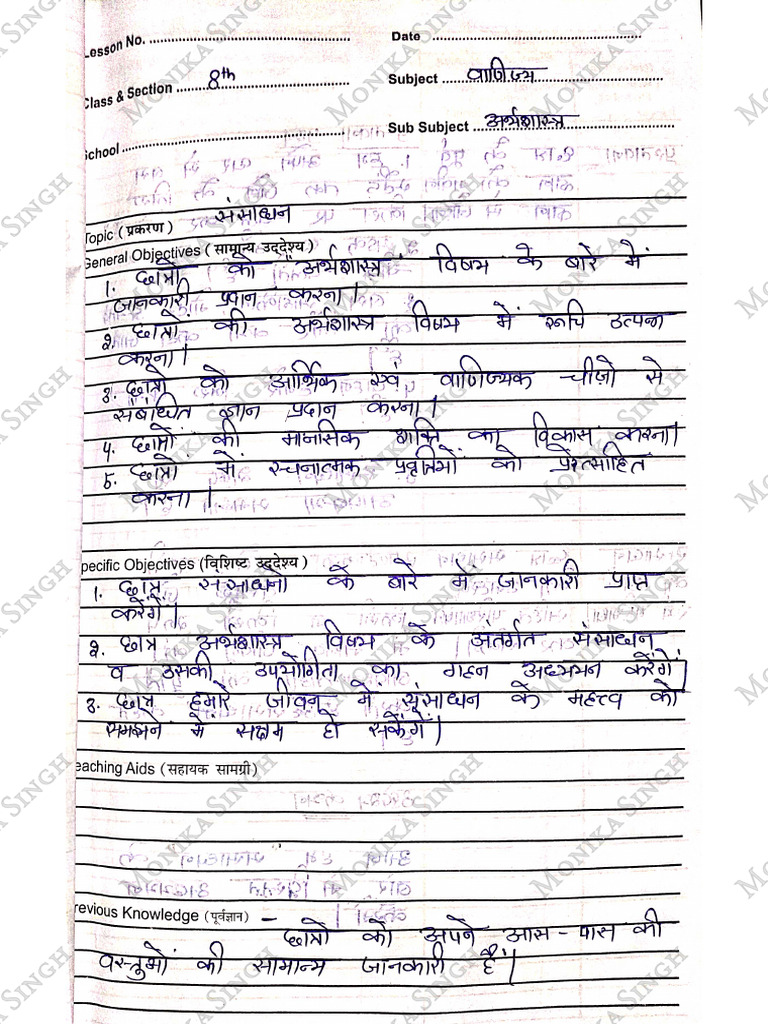 Lesson No. ........ Date ........
Class & Section ........ 8th Subject ........ वाणिज्य
School ........ Sub Subject ........ अर्थशास्त्र
Topic ( प्रकरण ) संसाधन
General Objectives ( सामान्य उद्देश्य )
1. छात्रो को "अर्थशास्त्र" विषय के बारे में
जानकारी प्रदान करना।
2. छात्रो की अर्थशास्त्र विषय में रूचि उत्पन्न
करना।
3. छात्रो को आर्थिक एवं वाणिज्यक चीज़ो से
संबंधित ज्ञान प्रदान करना।
4. छात्रों की मानसिक शक्ति का विकास करना।
5. छात्रो में रचनात्मक प्रवृत्तियों को प्रोत्साहित
करना।
Specific Objectives ( विशिष्ट उद्देश्य )
1. छात्र संसाधनो के बारे में जानकारी प्राप्त
करेंगे।
2. छात्र अर्थशास्त्र विषय के अंतर्गत संसाधन
व उसकी उपयोगिता का गहन अध्ययन करेंगें।
3. छात्र हमारे जीवन में संसाधन के महत्व को
समझने में सक्षम हो सकेंगें।
Teaching Aids ( सहायक सामग्री )
Previous Knowledge ( पूर्वज्ञान ) -
छात्रो को अपने आस - पास की
वस्तुओं की सामान्य जानकारी है।
MONIKA SINGH